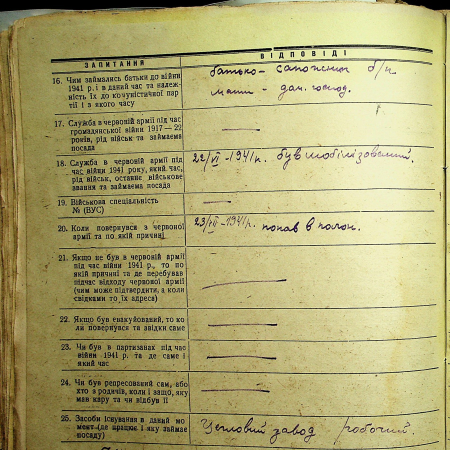 ЗАПИТАННЯ
ВІДПОВІДІ
16. Чим займались батьки до війни
1941 р. і в даний час та належ-
ність їх до комуністичної пар-
тії і з якого часу
батько- сапожник б/п
мати - дом. господ.
17. Служба в червоній армії під час
громадянської війни 1917—22
років, рід військ та займаєма
посада
—
18. Служба в червоній армії під
час війни 1941 року, який час,
рід військ, останнє військове
звання та займаєма посада
22/VI -1941р. був мобілізований.
19. Військова спеціяльність
№ (ВУС)
—
20. Коли повернувся з червоної
армії та по якій причині
23/VII -1941р. попав в полон.
21. Якщо не був в червоній армії
під час війни 1941 р., то по
якій причині та де перебував
підчас відходу червоної армії
(чим може підтвердити, а коли
свідками то їх адреса)
—
22. Якщо був евакуйований, то ко-
ли повернувся та звідки саме
—
23. Чи був в партизанах під час
війни 1941 р. та де саме і
який час
—
24. Чи був репресований сам, або
хто з родичів, коли і защо, яку
мав кару та чи відбув її
—
25. Засоби існування в даний мо-
мент (де працює і яку займає
посаду)
Цегловий завод робочий.